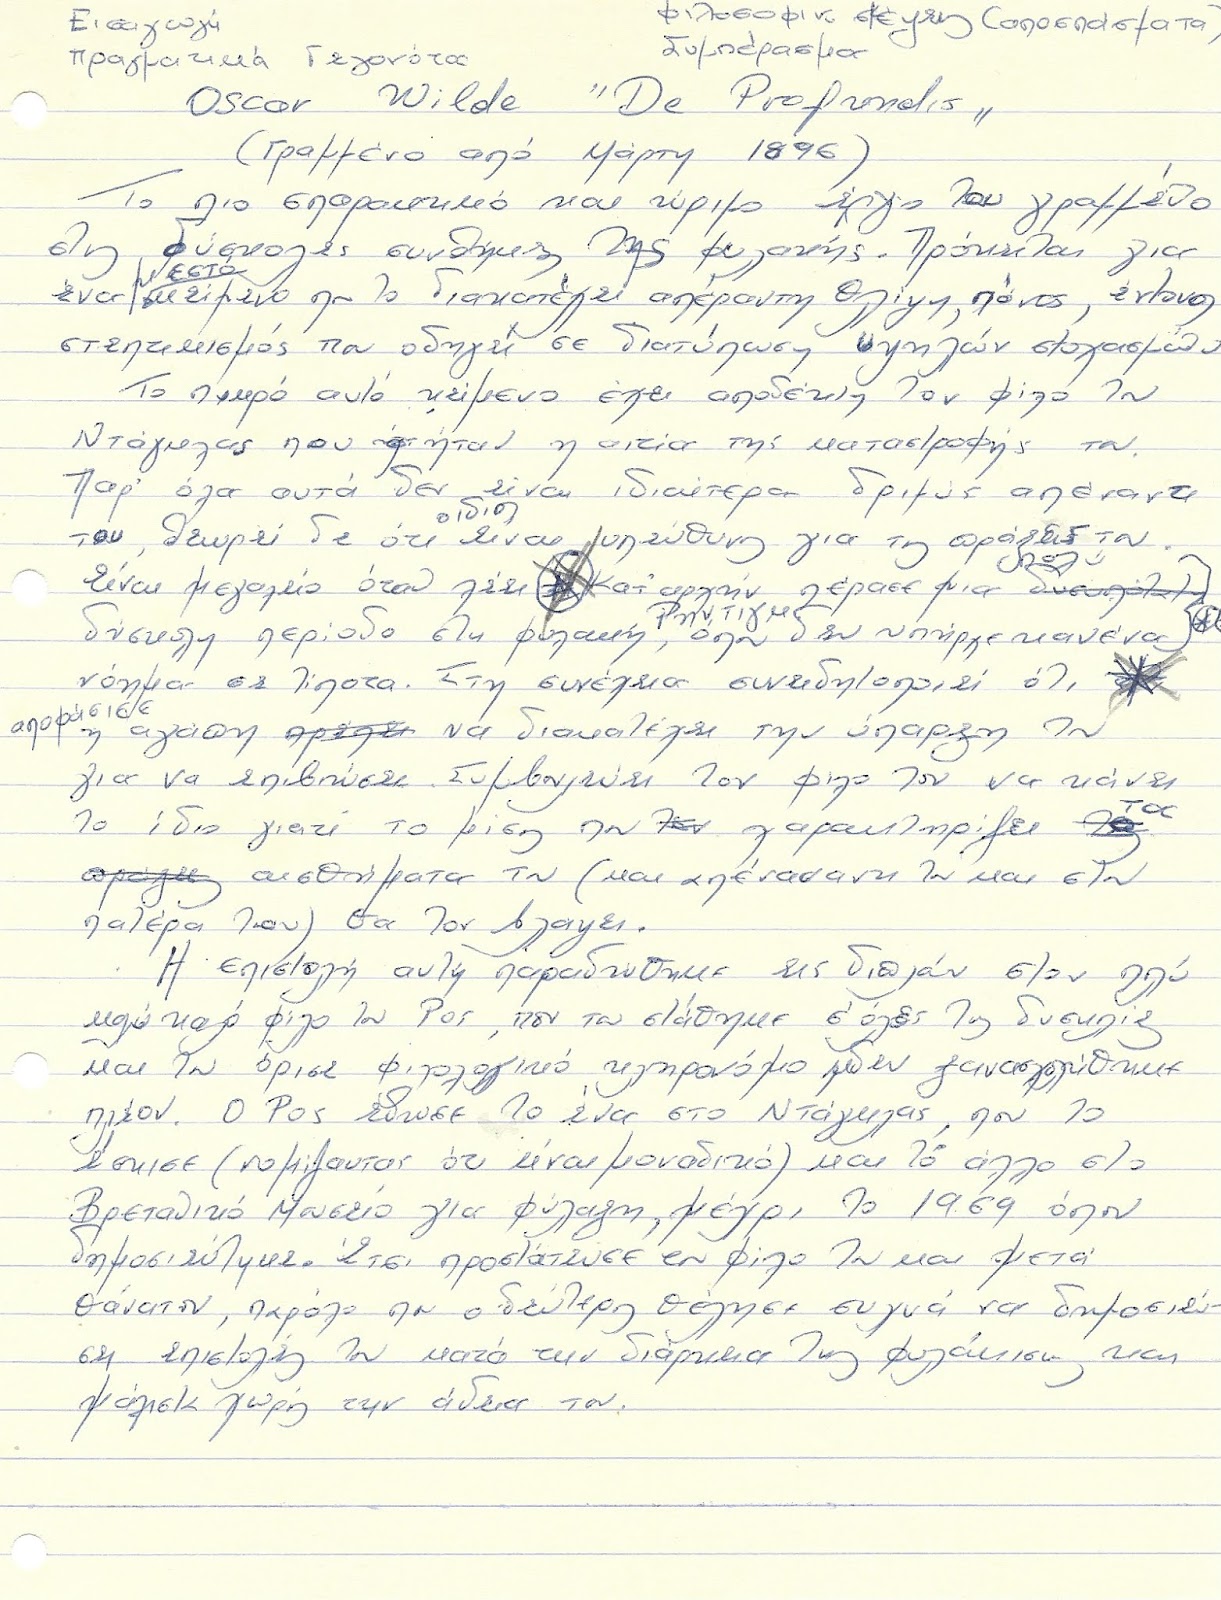 Εισαγωγή
πραγματικά γεγονότα
φιλοσοφικ σκέψεις (αποσπάσματα)
Συμπέρασμα
Oscar Wilde "De Profundis"
(Γραμμένο από Μάρτη 1896)
Το πιο σπαρακτικό και ώριμο έργο του γραμμένο
στις δύσκολες συνθήκες της φυλακής. Πρόκειται για
ένα μεστό κείμενο που το διακατέχει απέραντη θλίψη, πόνος, έντονος
σκεπτικισμός που οδηγεί σε διατύπωση υψηλών στοχασμών
Το πικρό αυτό κείμενο έχει αποδέκτη τον φίλο του
Ντάγκλας που ήταν η αιτία της καταστροφής του.
Παρ' όλα αυτά δεν είναι ιδιαίτερα δριμύς απέναντι
του, θεωρεί δε ότι ο ίδιος είναι υπεύθυνος για τις πράξεις του.
Είναι μεγαλείο όταν λέει Κατ' αρχήν πέρασε μια πολύ
δύσκολη περίοδο στη φυλακή Ρήντιγκ, όπου δεν υπήρχε κανένα
νόημα σε τίποτα. Στη συνέχεια συνειδητοποιεί ότι
αποφάσισε η αγάπη πρέπει να διακατέχει την ύπαρξη του
για να επιβιώσει. Συμβουλεύει τον φίλο του να κάνει
το ίδιο γιατί το μίσος που χαρακτηρίζει τα
πράξεις αισθήματα του (και απέναναντι του και στον
πατέρα του) θα τον βλάψει.
Η επιστολή αυτή παραδώθηκε εις διπλούν στον πολύ
καλό φίλο του Ρος, που του στάθηκε σ' όλες τις δυσκολίες
και τον όρισε φιλολογικό κληρονόμο δεν ξανασχολήθηκε
πλέον. Ο Ρος έδωσε το ένα στο Ντάγκλας, που το
έσκισε (νομίζοντας ότι είναι μοναδικό) και το άλλο στο
Βρετανικό Μουσείο για φύλαξη, μέχρι το 1969 όπου
δημοσιεύτηκε. Έτσι προστάτευσε το φίλο του και μετά
θάνατον, παρόλο που ο δεύτερος θέλησε συχνά να δημοσιεύ-
σει επιστολές του κατά την διάρκεια της φυλάκισης και
μάλιστα χωρίς την άδεια του.